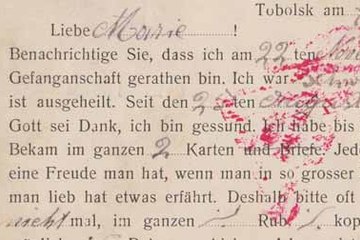 Tobolsk am
Liebe Marie !
Benachrichtige Sie, dass ich am 22 ten
Gefanganschaft gerathen bin. Ich war
ist ausgeheilt. Seit den 25 ten
Gott sei Dank, ich bin gessund. Ich habe bis
Bekam im ganzen 2 Karten und Briefe. Jede
eine Freude man hat, wenn man in so grosser
man lieb hat etwas erfährt. Deshalb bitte oft
nicht mal, im ganzen Rub. kop